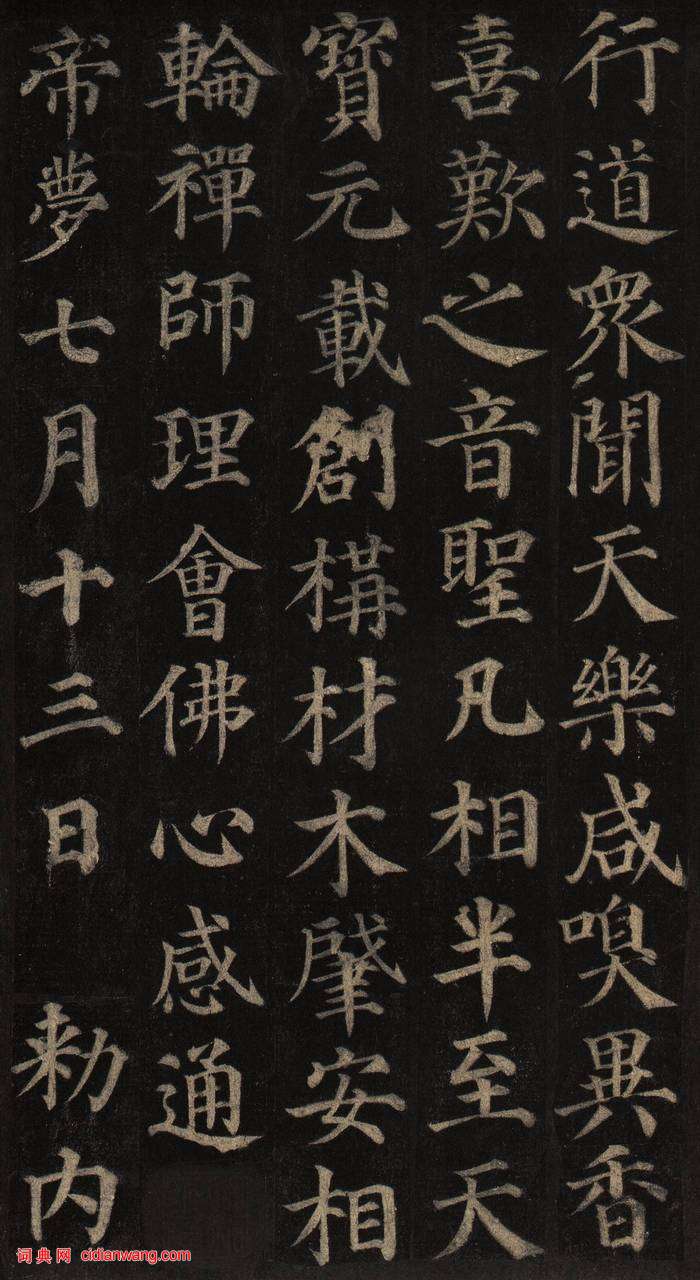 行道眾聞天樂咸嗅異香
喜歎之音聖凡相半至天
寶元載創構材木肇安相
輪禪師理會佛心感通
帝夢七月十三日 勑內
词典网 cidianwang.com